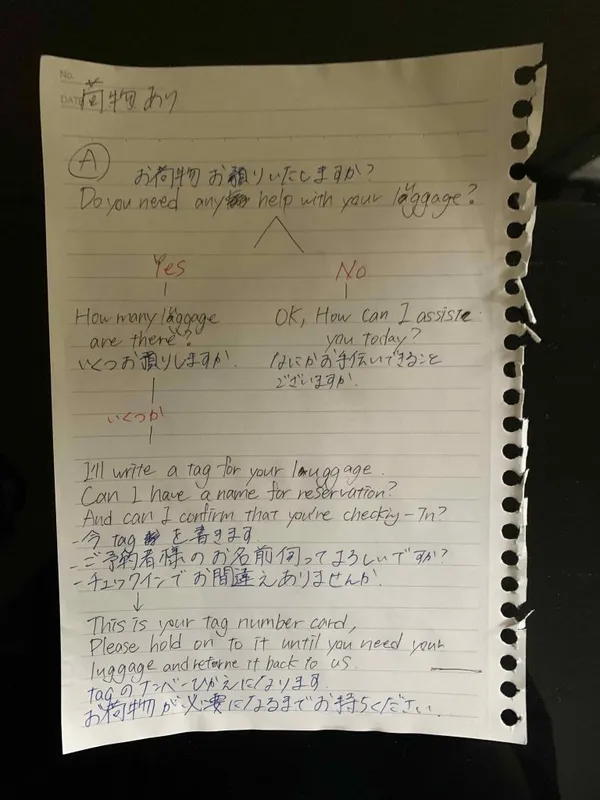 No.
DATE
荷物あり
A
お荷物お預りいたしますか?
Do you need any help with your luggage?
Yes
No
How many luggage
are there?
いくつお預りしますか.
OK, How can I assist
you today?
なにかお手伝いできること
ございますか.
いくつか
I'll write a tag for your luggage.
Can I have a name for reservation?
And can I confirm that you're checkiy-In?
-今 tag を書きます.
-ご予約者様のお名前伺ってよろしいですか?
-チェックインでお間違えありませんか.
This is your tag number card,
Please hold on to it until you need your
luggage and returne it back to us.
tagのナンバーひかえになります.
お荷物が必要になるまでお持ちください.